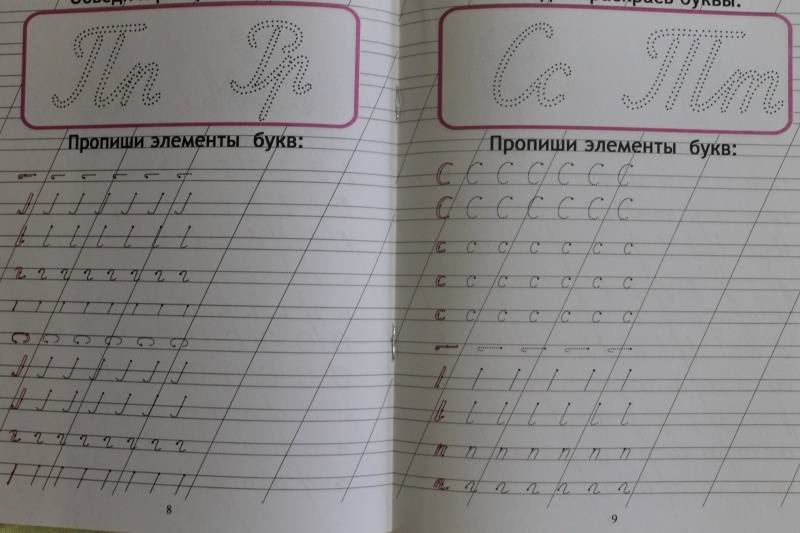 Пп Рр
Пропиши элементы букв:
8
раскрась буквы.
Сс Тт
Пропиши элементы букв:
С С С С С С С
С С С С С С С
с с с с с с с
с с с с с с с
с с с с с с с
9